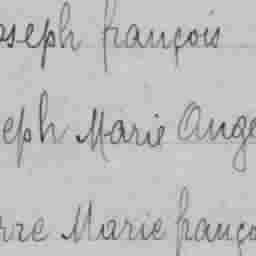 oseph françois
eph Marie Ange
rre Marie franço